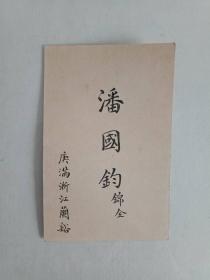 潘國鈞
錦全
庚滿浙江蘭谿